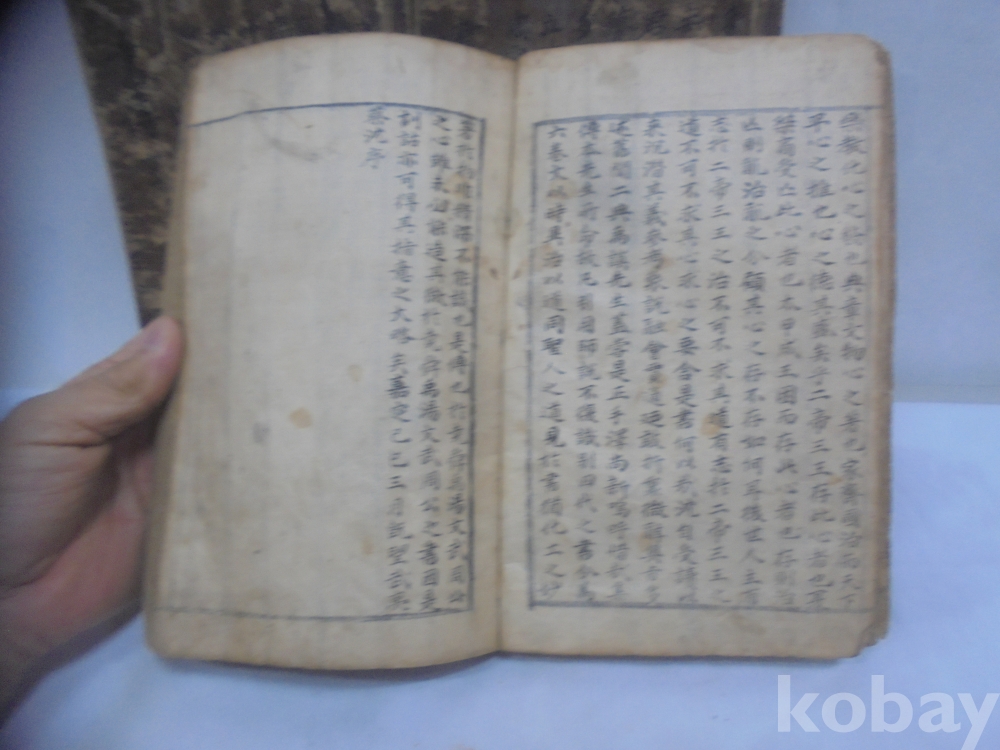 樂教化心之發也典章文物心之著也家齊國治而天下
平心之推也心之德其盛矣乎二帝三王存此心者也夏
桀商受亡此心者也太甲成王困而存此心者也存則治
亡則亂治亂之分顧其心之存不存如何耳後世人主有
志於二帝三王之治不可不求其道有志於二帝三王之
道不可不求其心求心之要舍是書何以哉沈自受讀以
來沈潛其義參考衆說融會貫通迺敢折衷微辭奧旨多
述舊聞二典禹謨先生蓋嘗是正手澤尚新嗚呼惜哉集
傳本先生所命故凡引用師說不復識別四代之書分爲
六卷文以時異治以道同聖人之道見於書猶化工之妙
著於物非精深不能識也是傳也於堯舜禹湯文武周公
之心雖未必能造其微於堯舜禹湯文武周公之書因是
訓詁亦可得其指意之大略矣嘉定己巳三月旣望武夷
蔡沈序
kobay